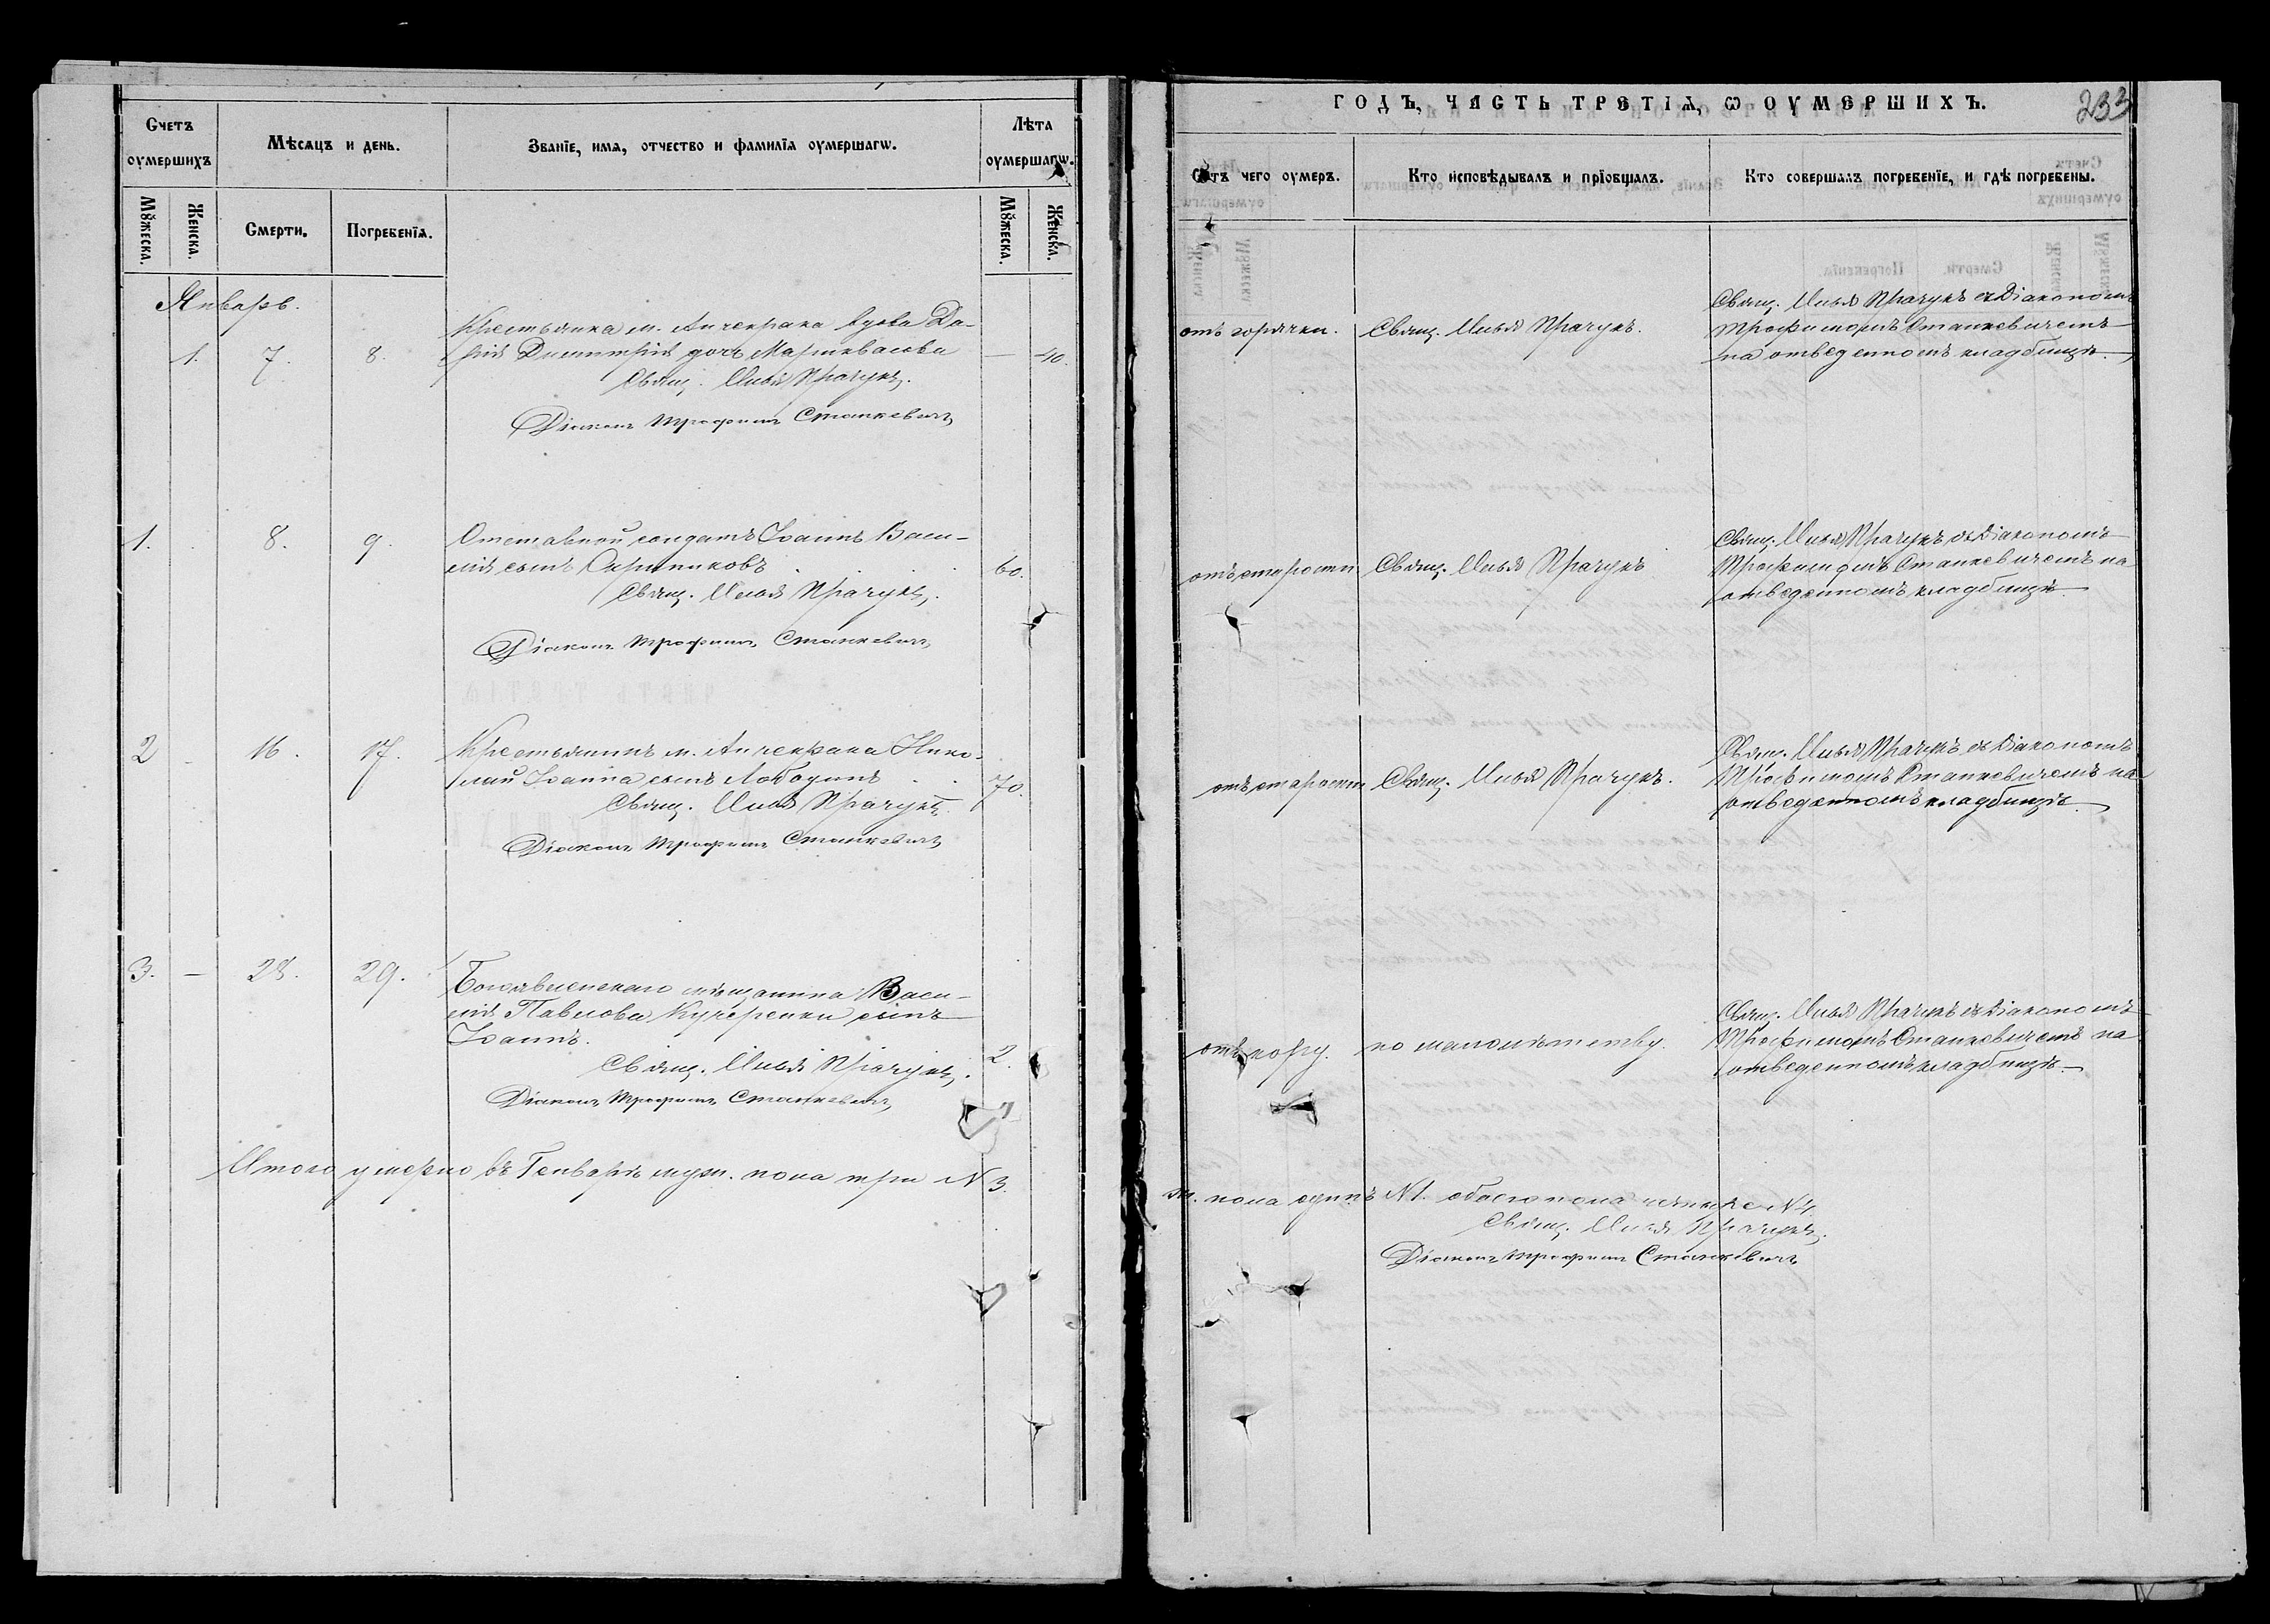 ГОДЪ, ЧАСТЬ ТРЕТІѦ, Ѡ ОУМЕРШИХЪ.
233
Счетъ оумершихъ
Мѣсѧцъ и день.
Званіе, имѧ, отчество и фамиліѧ оумершагѡ.
Лѣта оумершагѡ.
Ѿтъ чего оумеръ.
Кто исповѣдывалъ и пріобщалъ.
Кто совершалъ погребеніе, и гдѣ погребены.
Мꙋжеска.
Женска.
Смерти.
Погребеніѧ.
Мꙋжеска.
Женска.
Январь.
1. 7. 8.
Крестьянка м. Анчекрака вдова Да-
рія Димитрія дочь
— 40.
Свящ. Илья Прачукъ.
Діаконъ Трофимъ Станкевичъ
отъ горячки.
Свящ. Илья Прачукъ.
Свящ. Илья Прачукъ съ Діакономъ
Трофимомъ Станкевичемъ
на отведенномъ кладбищѣ.
1. 8. 9.
Отставной солдатъ Іоаннъ Васи-
лія сынъ
60.
Свящ. Илья Прачукъ.
Діаконъ Трофимъ Станкевичъ
отъ старости
Свящ. Илья Прачукъ
Свящ. Илья Прачукъ съ Діакономъ
Трофимомъ Станкевичемъ на
отведенномъ кладбищѣ.
2 16. 17.
Крестьянинъ м. Анчекрака Нико-
лай Іоанна сынъ Лободинъ
70.
Свящ. Илья Прачукъ
Діаконъ Трофимъ Станкевичъ
отъ старости
Свящ. Илья Прачукъ.
Свящ. Илья Прачукъ съ Діакономъ
Трофимомъ Станкевичемъ на
отведенномъ кладбищѣ.
3. — 28. 29.
Богоявленскаго мѣщанина Васи-
лія Павлова Кучеренки сынъ
Іоаннъ.
2.
Свящ. Илья Прачукъ.
Діаконъ Трофимъ Станкевичъ
отъ кору.
по малолѣтству.
Свящ. Илья Прачукъ съ Діакономъ
Трофимомъ Станкевичемъ на
отведенномъ кладбищѣ.
Итого умерло въ Генварѣ муж. пола три N 3.
ж. пола одинъ N 1. обоего пола четыре N 4.
Свящ. Илья Прачукъ.
Діаконъ Трофимъ Станкевичъ